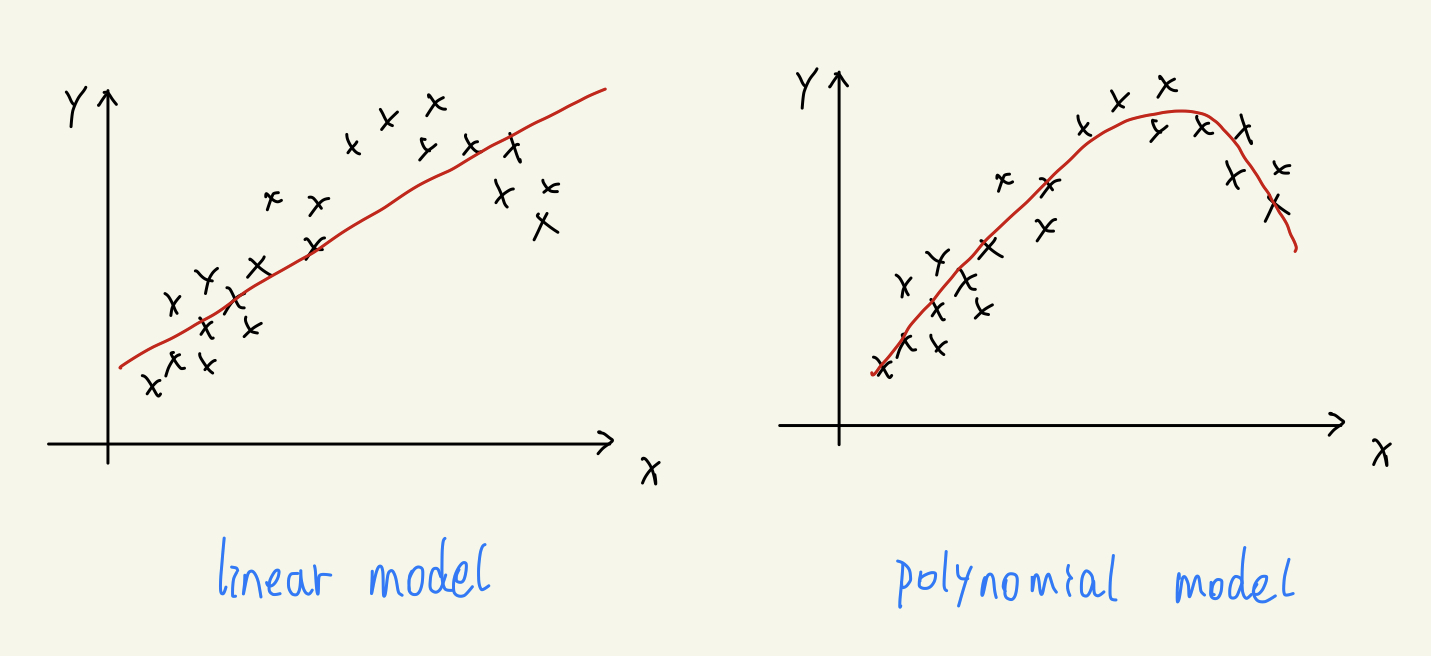 Y
X
linear model
Y
X
polynomial model